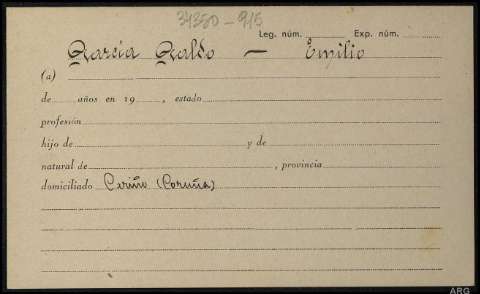 34350-9/5
Leg. núm. Exp. núm.
García Galdo — Emilio
(a)
de años en 19 , estado
profesión
hijo de y de
natural de , provincia
domiciliado Cariño (Coruña)
ARG